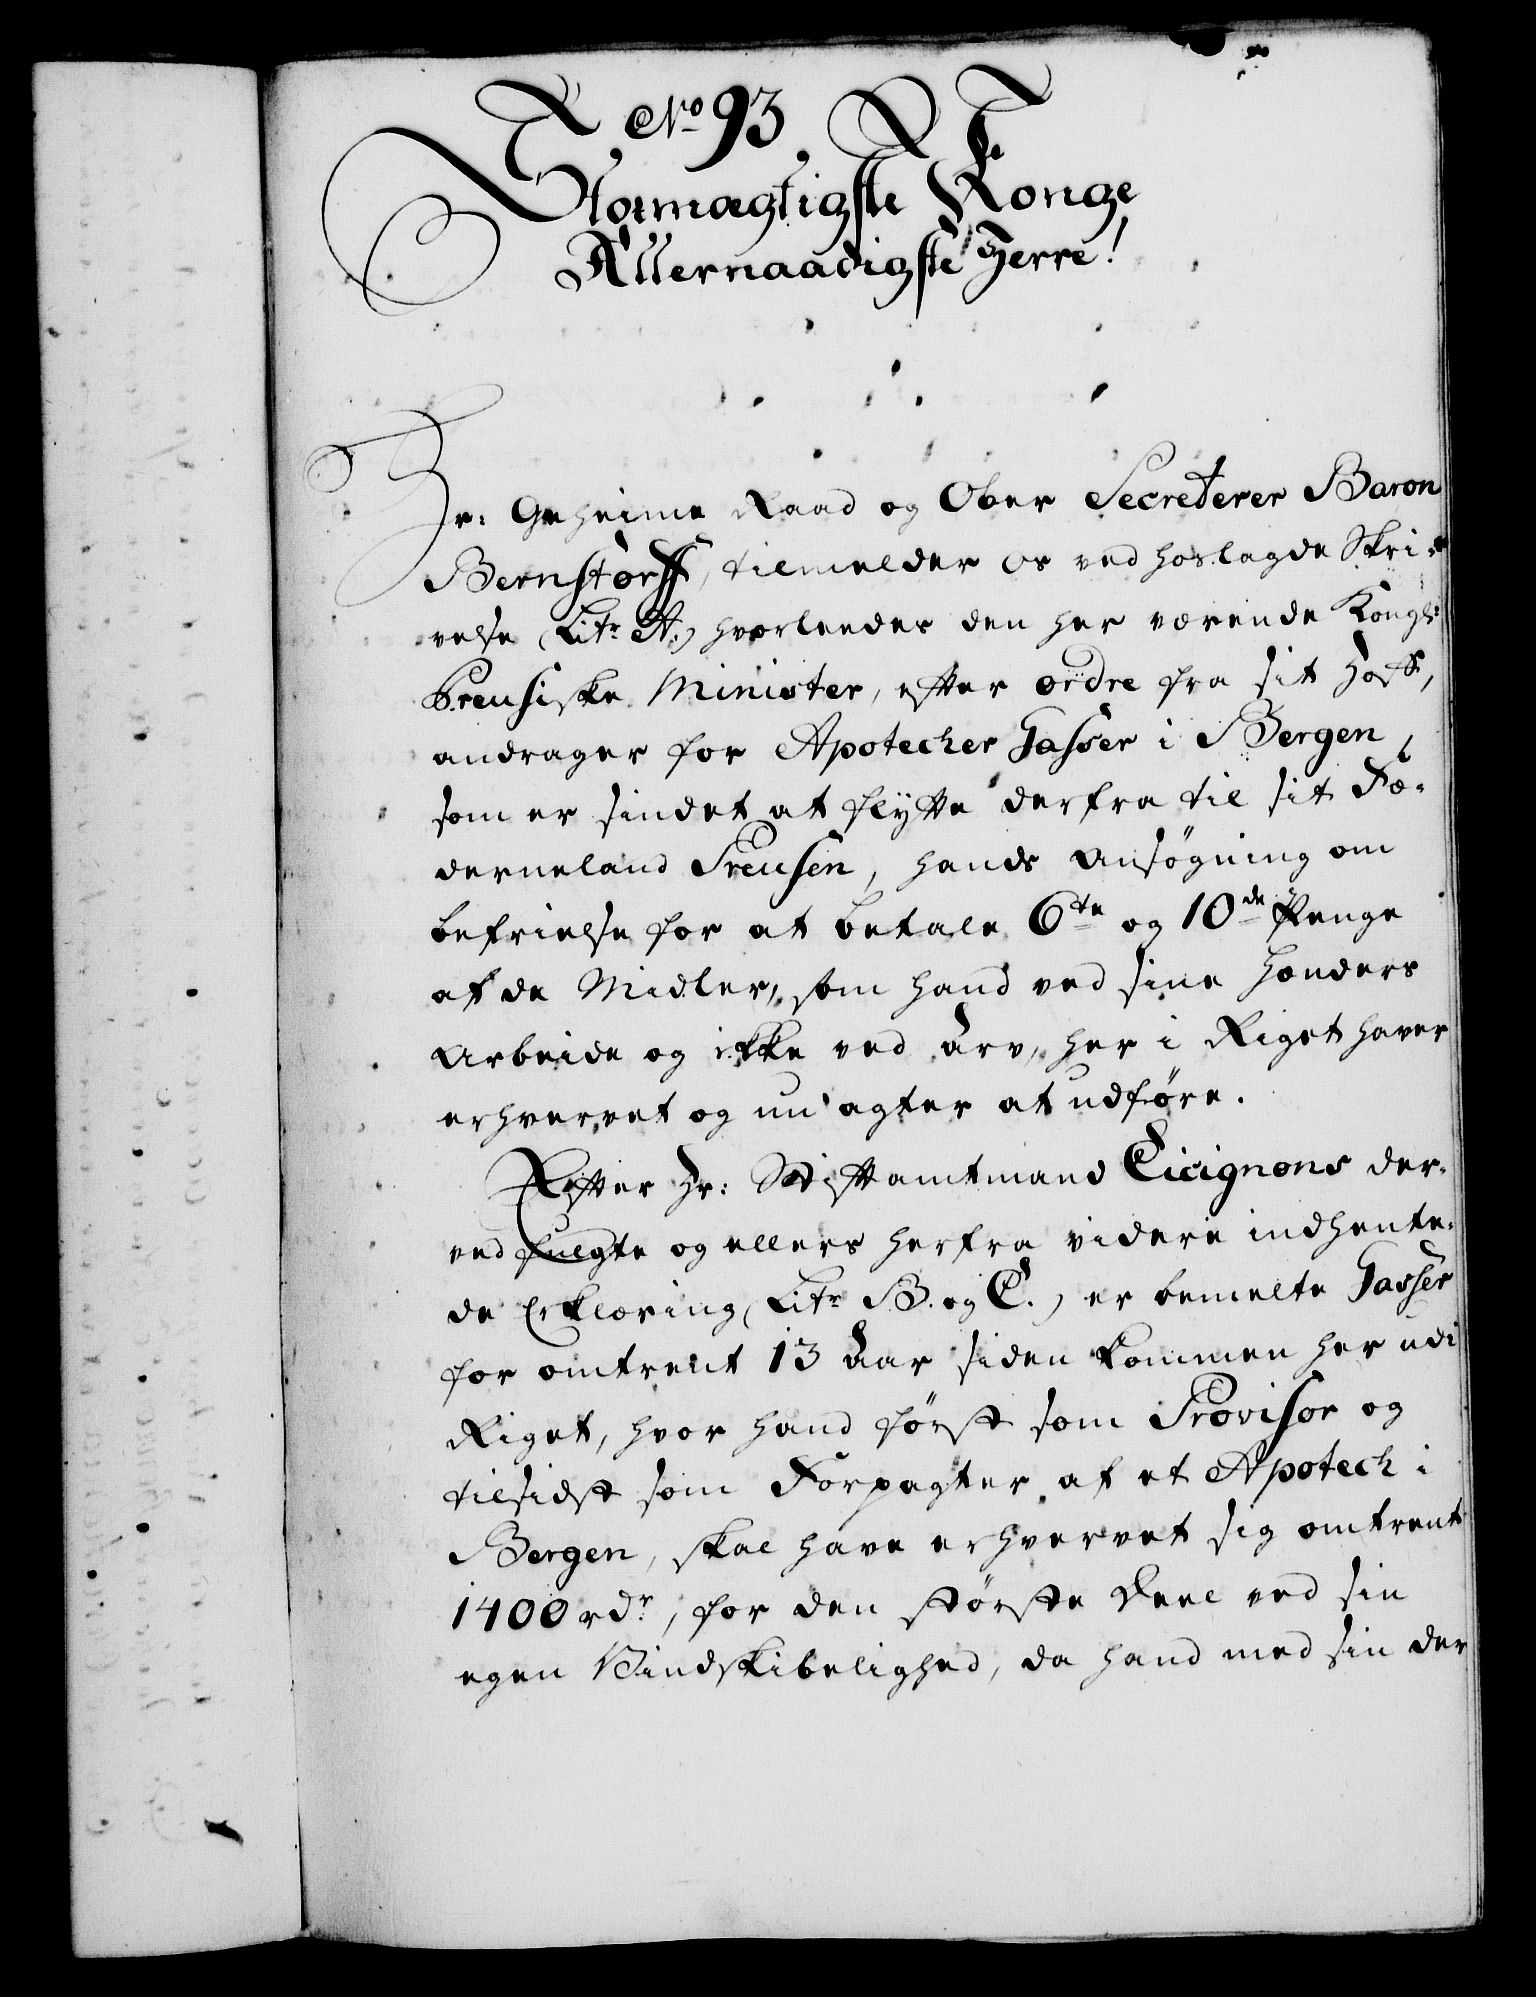 No 93
Stormægtigste Konge
Allernaadigste Herre!
Hr: Geheime Raad og Ober Secreterer Baron
Bernstorff, tilmelder os ved hoslagde Skri-
velse (Litr A:) hvorledes den her værende Kongl:
Preusiske Minister, efter ordre fra sit Hoff,
andrager for Apotecher Gasser i Bergen,
som er sindet at flytte derfra til sit Fæ-
derneland Preusen, hands Ansøgning om
befrielse for at betale 6te og 10de Penge
af de Midler, som hand ved sine Hænders
Arbeide og ikke ved Arv, her i Riget haver
erhvervet og nu agter at udføre.
Efter Hr: Stiftamtmand Cicignons der-
ved fulgte og ellers herfra videre indhente-
de Erklæring (Litr B. og C.) er bemelte Gasser
for omtrent 13 Aar siden kommen her udi
Riget, hvor hand først som Provisor og
tilsidst som Forpagter af et Apotech i
Bergen, skal have erhvervet sig omtrent
1400 rdr, for den største Deel ved sin
egen Vindskibelighed, da hand med sin der